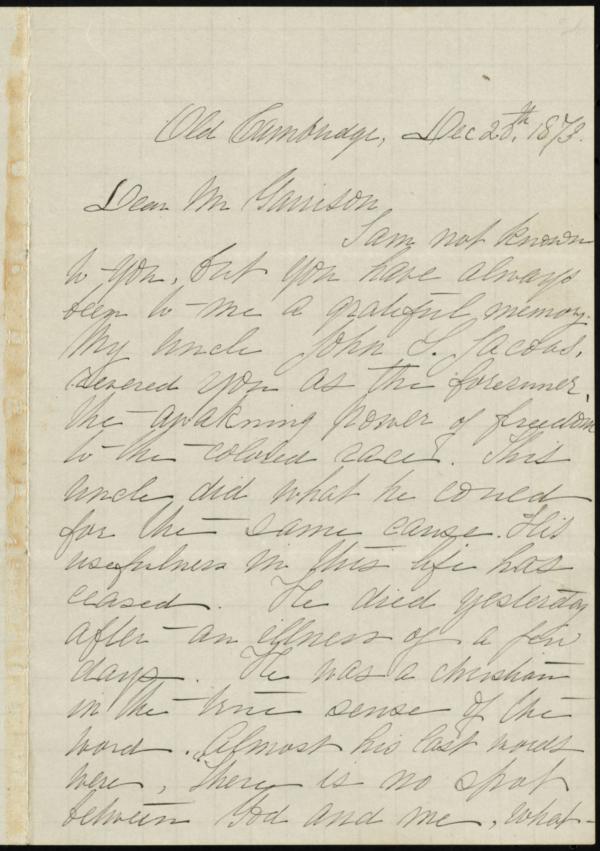 Old Cambridge, Dec 20th, 1873.
Dear Mr Garrison,
I am not known
to you, but you have always
been to me a grateful memory.
My uncle John S. Jacobs,
revered you as the forerunner,
the awakning power of freedom
to the colored race. This
uncle did what he could
for the same cause. His
usefulness in this life has
ceased. He died yesterday
after an illness of a few
days. He was a christian
in the true sense of the
word. Almost his last words
were, "There is no spot
between God and me, what-